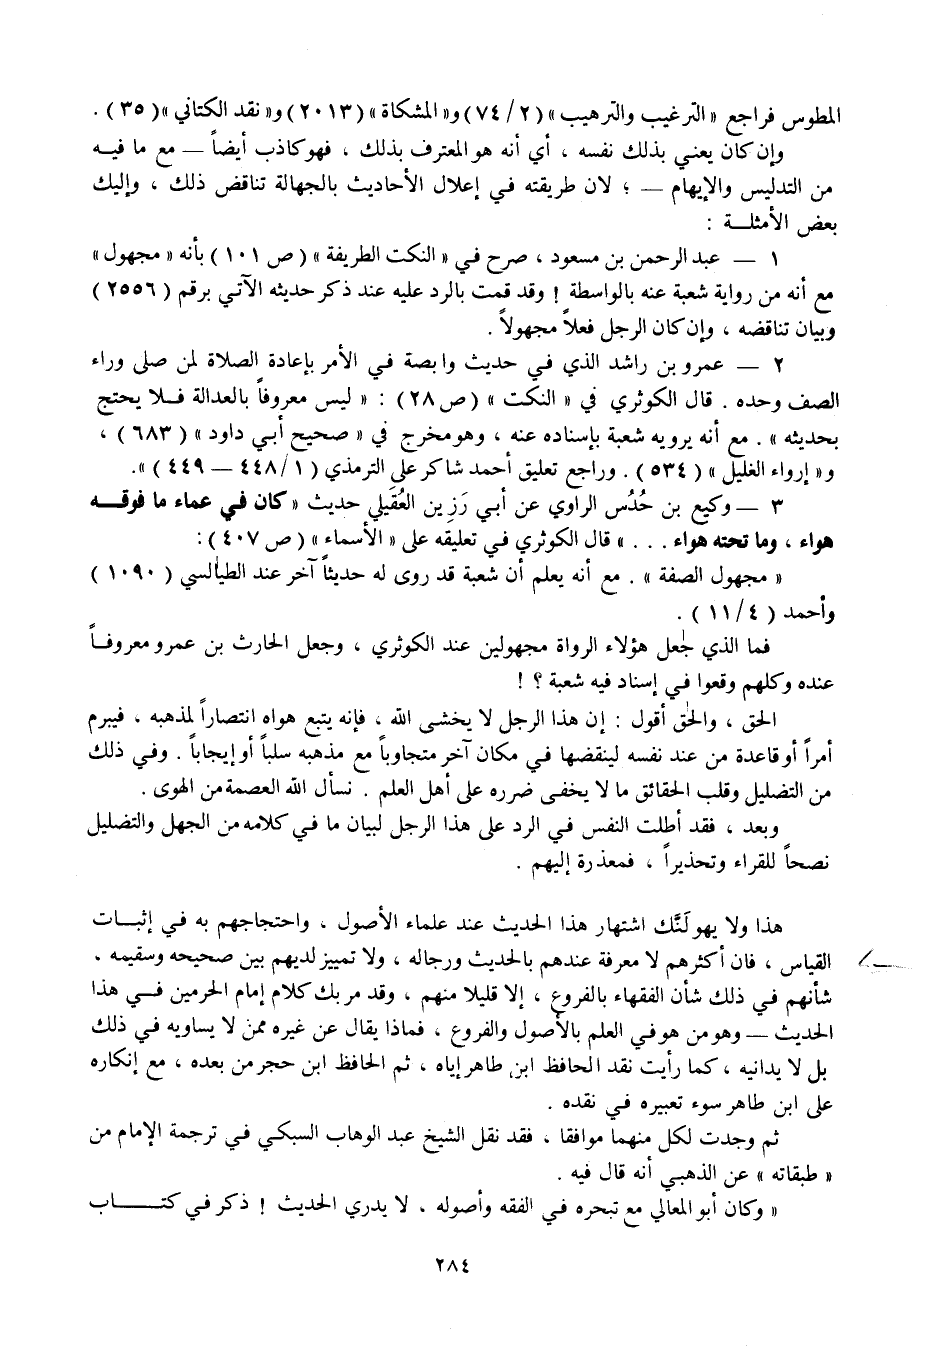 المطوس فراجع « الترغيب والترهيب » ( ٢ / ٧٤ ) و« المشكاة » ( ٢٠١٣ ) و« نقد الكتاني » ( ٣٥ ) .
وإن كان يعني بذلك نفسه ، أي أنه هو المعترف بذلك ، فهو كاذب أيضاً — مع ما فيـه
من التدليس والإيهام — ؛ لان طريقته في إعلال الأحاديث بالجهالة تناقض ذلك ، وإليك
بعض الأمثلـة :
١ — عبد الرحمن بن مسعود ، صرح في « النكت الطريفة » ( ص ١٠١ ) بأنه « مجهول »
مع أنه من رواية شعبة عنه بالواسطة ! وقد قمت بالرد عليه عند ذكر حديثه الآتي برقم ( ٢٥٥٦ )
وبيان تناقضه ، وإن كان الرجل فعلاً مجهولاً .
٢ — عمرو بن راشد الذي في حديث وابصة في الأمر بإعادة الصلاة لمن صلى وراء
الصف وحده . قال الكوثري في « النكت » ( ص ٢٨ ) : « ليس معروفاً بالعدالة فـلا يحتج
بحديثه » . مع أنه يرويه شعبة بإسناده عنه ، وهو مخرج في « صحيح أبي داود » ( ٦٨٣ ) ،
و« إرواء الغليل » ( ٥٣٤ ) . وراجع تعليق أحمد شاكر على الترمذي ( ١ / ٤٤٨ — ٤٤٩ ) ».
٣ — وكيع بن حُدُس الراوي عن أبي رَزِين العُقَيلي حديث « كان في عماء ما فوقـه
هواء ، وما تحته هواء . . . » قال الكوثري في تعليقه على « الأسماء » ( ص ٤٠٧ ) :
« مجهول الصفة » . مع أنه يعلم أن شعبة قد روى له حديثاً آخر عند الطيالسي ( ١٠٩٠ )
وأحمد ( ٤ / ١١ ) .
فما الذي جعل هؤلاء الرواة مجهولين عند الكوثري ، وجعل الحارث بن عمرو معروفـاً
عنده وكلهم وقعوا في إسناد فيه شعبة ؟ !
الحق ، والحق أقول : إن هذا الرجل لا يخشى الله ، فإنه يتبع هواه انتصاراً لمذهبه ، فيبرم
أمراً أو قاعدة من عند نفسه لينقضها في مكان آخر متجاوباً مع مذهبه سلباً أو إيجاباً . وفي ذلك
من التضليل وقلب الحقائق ما لا يخفى ضرره على أهل العلم . نسأل الله العصمة من الهوى .
وبعد ، فقد أطلت النفس في الرد على هذا الرجل لبيان ما في كلامه من الجهل والتضليل
نصحاً للقراء وتحذيراً ، فمعذرة إليهم .
هذا ولا يهولَنَّك اشتهار هذا الحديث عند علماء الأصول ، واحتجاجهم به في إثبـات
القياس ، فان أكثرهم لا معرفة عندهم بالحديث ورجاله ، ولا تمييز لديهم بين صحيحه وسقيمه ،
شأنهم في ذلك شأن الفقهاء بالفروع ، إلا قليلا منهم ، وقد مر بك كلام إمام الحرمين فـي هذا
الحديث — وهو من هو في العلم بالأصول والفروع ، فماذا يقال عن غيره ممن لا يساويه في ذلك
بل لا يدانيه ، كما رأيت نقد الحافظ ابن طاهر إياه ، ثم الحافظ ابن حجر من بعده ، مع إنكاره
على ابن طاهر سوء تعبيره في نقده .
ثم وجدت لكل منهما موافقا ، فقد نقل الشيخ عبد الوهاب السبكي في ترجمة الإمام من
« طبقاته » عن الذهبي أنه قال فيه .
« وكان أبو المعالي مع تبحره في الفقه وأصوله ، لا يدري الحديث ! ذكر في كتـــاب
٢٨٤